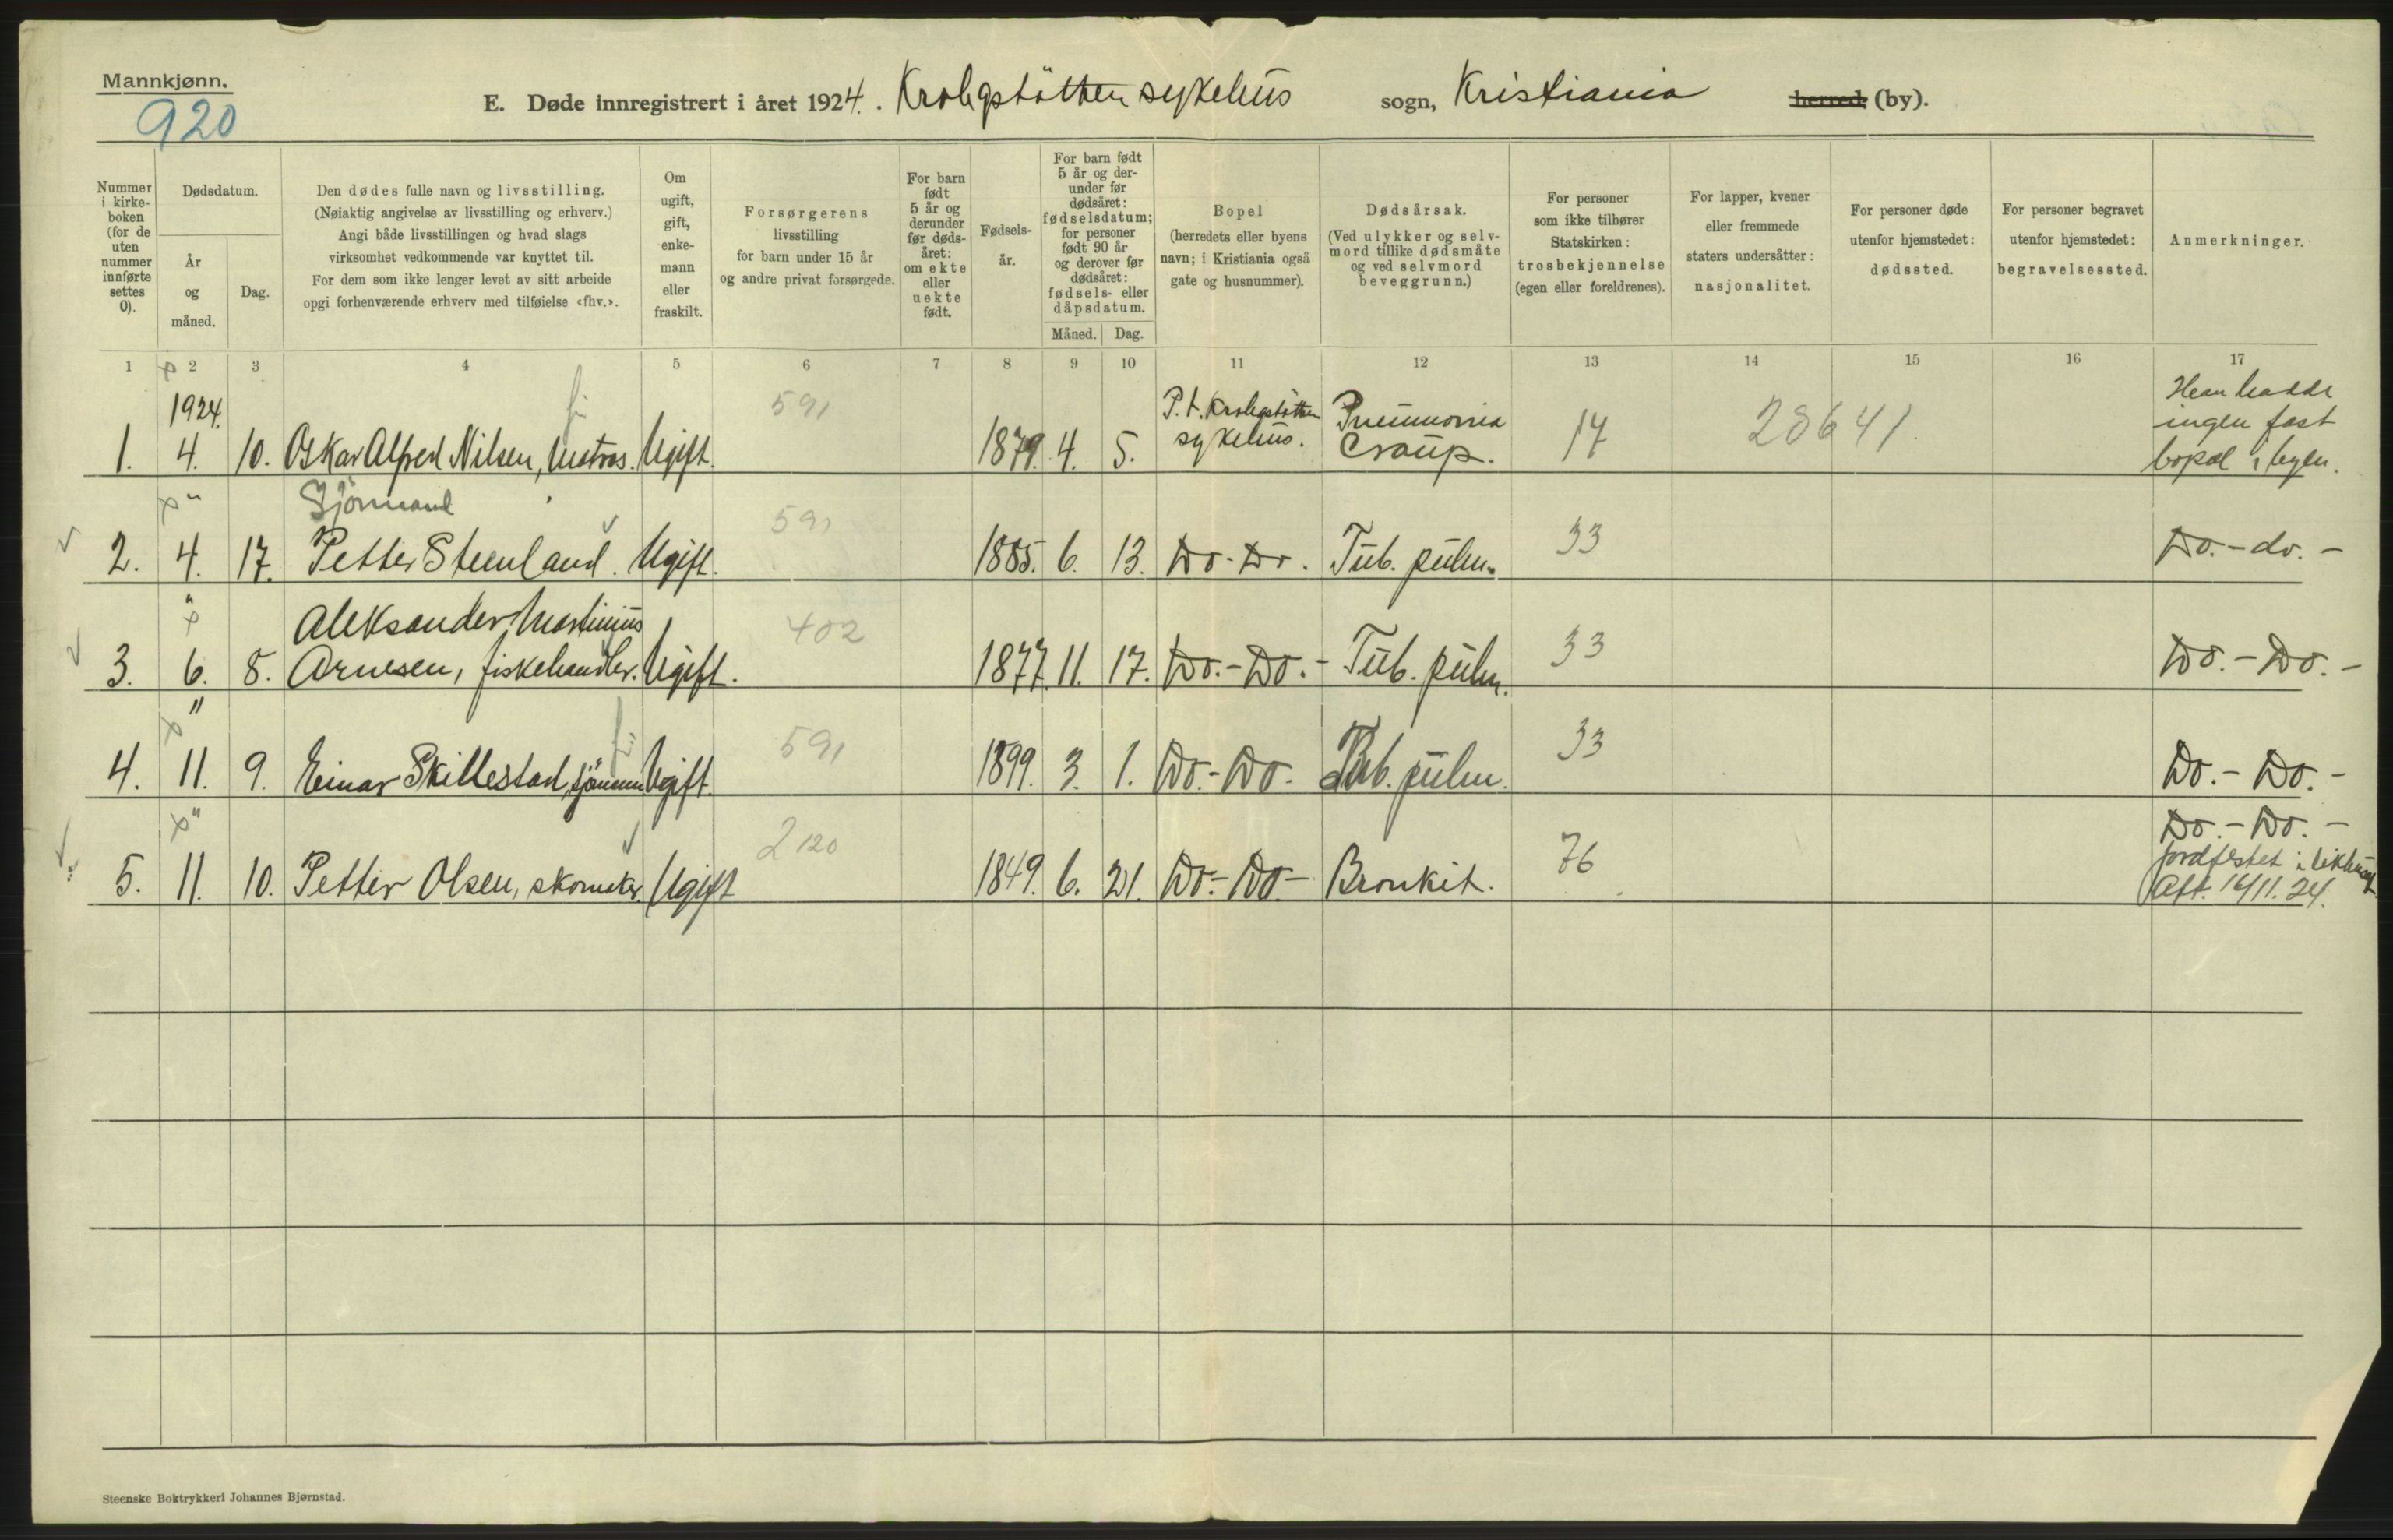 Mannkjønn.
920
E. Døde innregistrert i året 1924. Krohgstötten sykehus sogn, Kristiania herred (by).
Nummer i kirkeboken (for de uten nummer innførte settes 0).
Dødsdatum.
År og måned.
Dag.
Den dødes fulle navn og livsstilling.
(Nøiaktig angivelse av livsstilling og erhverv.)
Angi både livsstillingen og hvad slags
virksomhet vedkommende var knyttet til.
For dem som ikke lenger levet av sitt arbeide
opgi forhenværende erhverv med tilføielse «fhv.».
Om ugift, gift, enkemann eller fraskilt.
Forsørgerens
livsstilling
for barn under 15 år
og andre privat forsørgede.
For barn født 5 år og derunder før dødsåret: om ekte eller uekte født.
Fødselsår.
For barn født 5 år og derunder før dødsåret: fødselsdatum; for personer født 90 år og derover før dødsåret: fødsels- eller dåpsdatum.
Måned. Dag.
Bopel
(herredets eller byens
navn; i Kristiania også
gate og husnummer).
Dødsårsak.
(Ved ulykker og selvmord tillike dødsmåte
og ved selvmord
beveggrunn.)
For personer
som ikke tilhører
Statskirken:
trosbekjennelse
(egen eller foreldrenes).
For lapper, kvener
eller fremmede
staters undersåtter:
nasjonalitet.
For personer døde
utenfor hjemstedet:
dødssted.
For personer begravet
utenfor hjemstedet:
begravelsessted.
Anmerkninger.
1 2 3 4 5 6 7 8 9 10 11 12 13 14 15 16 17
1924.
1. 4. 10. Oskar Alfred Nilsen, Matros. Ugift. 591 1879. 4. 5. P.t. Krohgstötten sykehus. Pneumonia Croup. 17 28641. Han hadde ingen fast bopæl i byen.
Sjömand
2. " 4. 17. Petter Steenland. Ugift. 591 1885. 6. 13. Do.-Do. Tub. pulm. 33 Do.-do.-
Aleksander Martinius
3. " 6. 8. Arnesen, fiskehandler. Ugift. 402 1877. 11. 17. Do.-Do.- Tub. pulm. 33 Do.-Do.-
4. " 11. 9. Einar Skillestad, sjömann Ugift. 591 1899. 3. 1. Do.-Do. Tub. pulm. 33 Do.-Do.-
5. " 11. 10. Petter Olsen, skomaker. Ugift 2120 1849. 6. 21. Do.-Do- Bronkit. 76 Do.-Do.-
jordfestet i
Aft. 14/11. 24.
Steenske Boktrykkeri Johannes Bjørnstad.